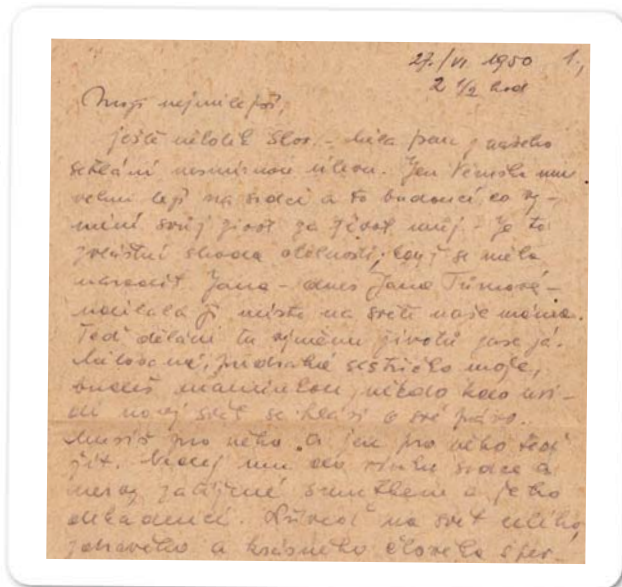 27./VI 1950 1.,
2 1/2 hod
Moji nejmilejší,
ještě několik slov. – Měla jsem z našeho
shledání nesmírnou úlevu. Jen Věruška mne
velmi leží na srdci a to budoucí, co vy-
mění svůj život za život můj – Je to
zvláštní shoda okolností, když se měla
narodit Jana – dnes Jana Tůmová –
udělala jí místo na světě naše máma.
Teď dělám tu výměnu životů zase já.
Milovaná, předrahá sestřičko moje,
budeš maminkou, někdo kdo uvi-
dí nový svět se hlásí o své právo.
Musíš pro něho a jen pro něho teď
žít. Nedej mu do vínku srdce a
nervy zatížené smutkem a jeho
dekadencí. Přiveď na svět celého,
zdravého a krásného člověka